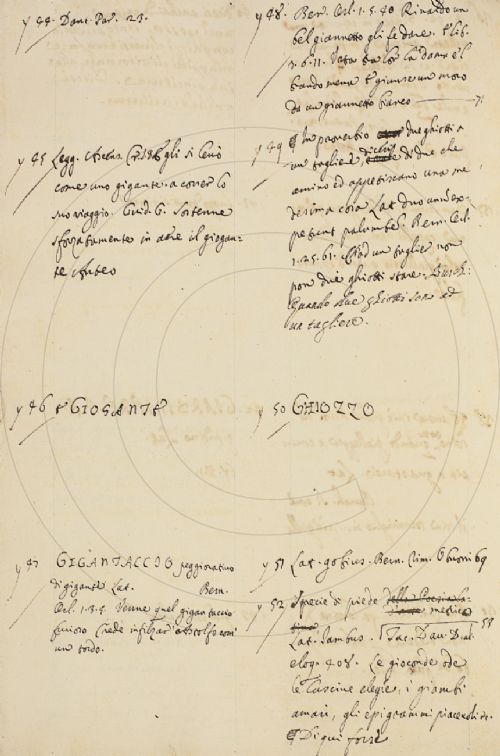 y 44 Dant. Par. 23.
y 45 Legg. Ascens. Cr. 186 gli si levò
come uno gigante a correr lo
suo viaggio. Guid. G. Sostenne
sforzatamente in aere il gigan=
te Anteo
y 46 & GIGANTE
y 47 GIGANTACCIO peggiorativo
di gigante Lat. Bern.
Orl. 1.3.5. Venne quel gigantaccio
furioso Crede infilzar Astolfo com'
un tordo.
y 48. Ber. Orl. 1.5.40 Rinaldo un
bel giannetto gli fe dare. E lib.
3.6.11.
E giunse un moro
da un giannetto bianco
y 49 In proverbio due ghiotti a
un tagliere, dicesi di due che
amino ed appetiscano una me
desima cosa Lat. duo unum ex=
petunt palumbem. Bern. Orl.
1.25.61. Ad un taglier non
pon due ghiotti stare. Burch.
Quando due ghiotti sono ad
un tagliere.
y 50 GHIOZZO
y 51 Lat. gobius. Bern. rim. 69
y 52 Specie di piede della Poesia La
metrico
Lat. Iambus. Tac. Dav. Dial.
eloq. 408. Le gioconde ode
le lascive elegie, i giambi
amari, gli epigrammi piacevoli.
Di qui forse